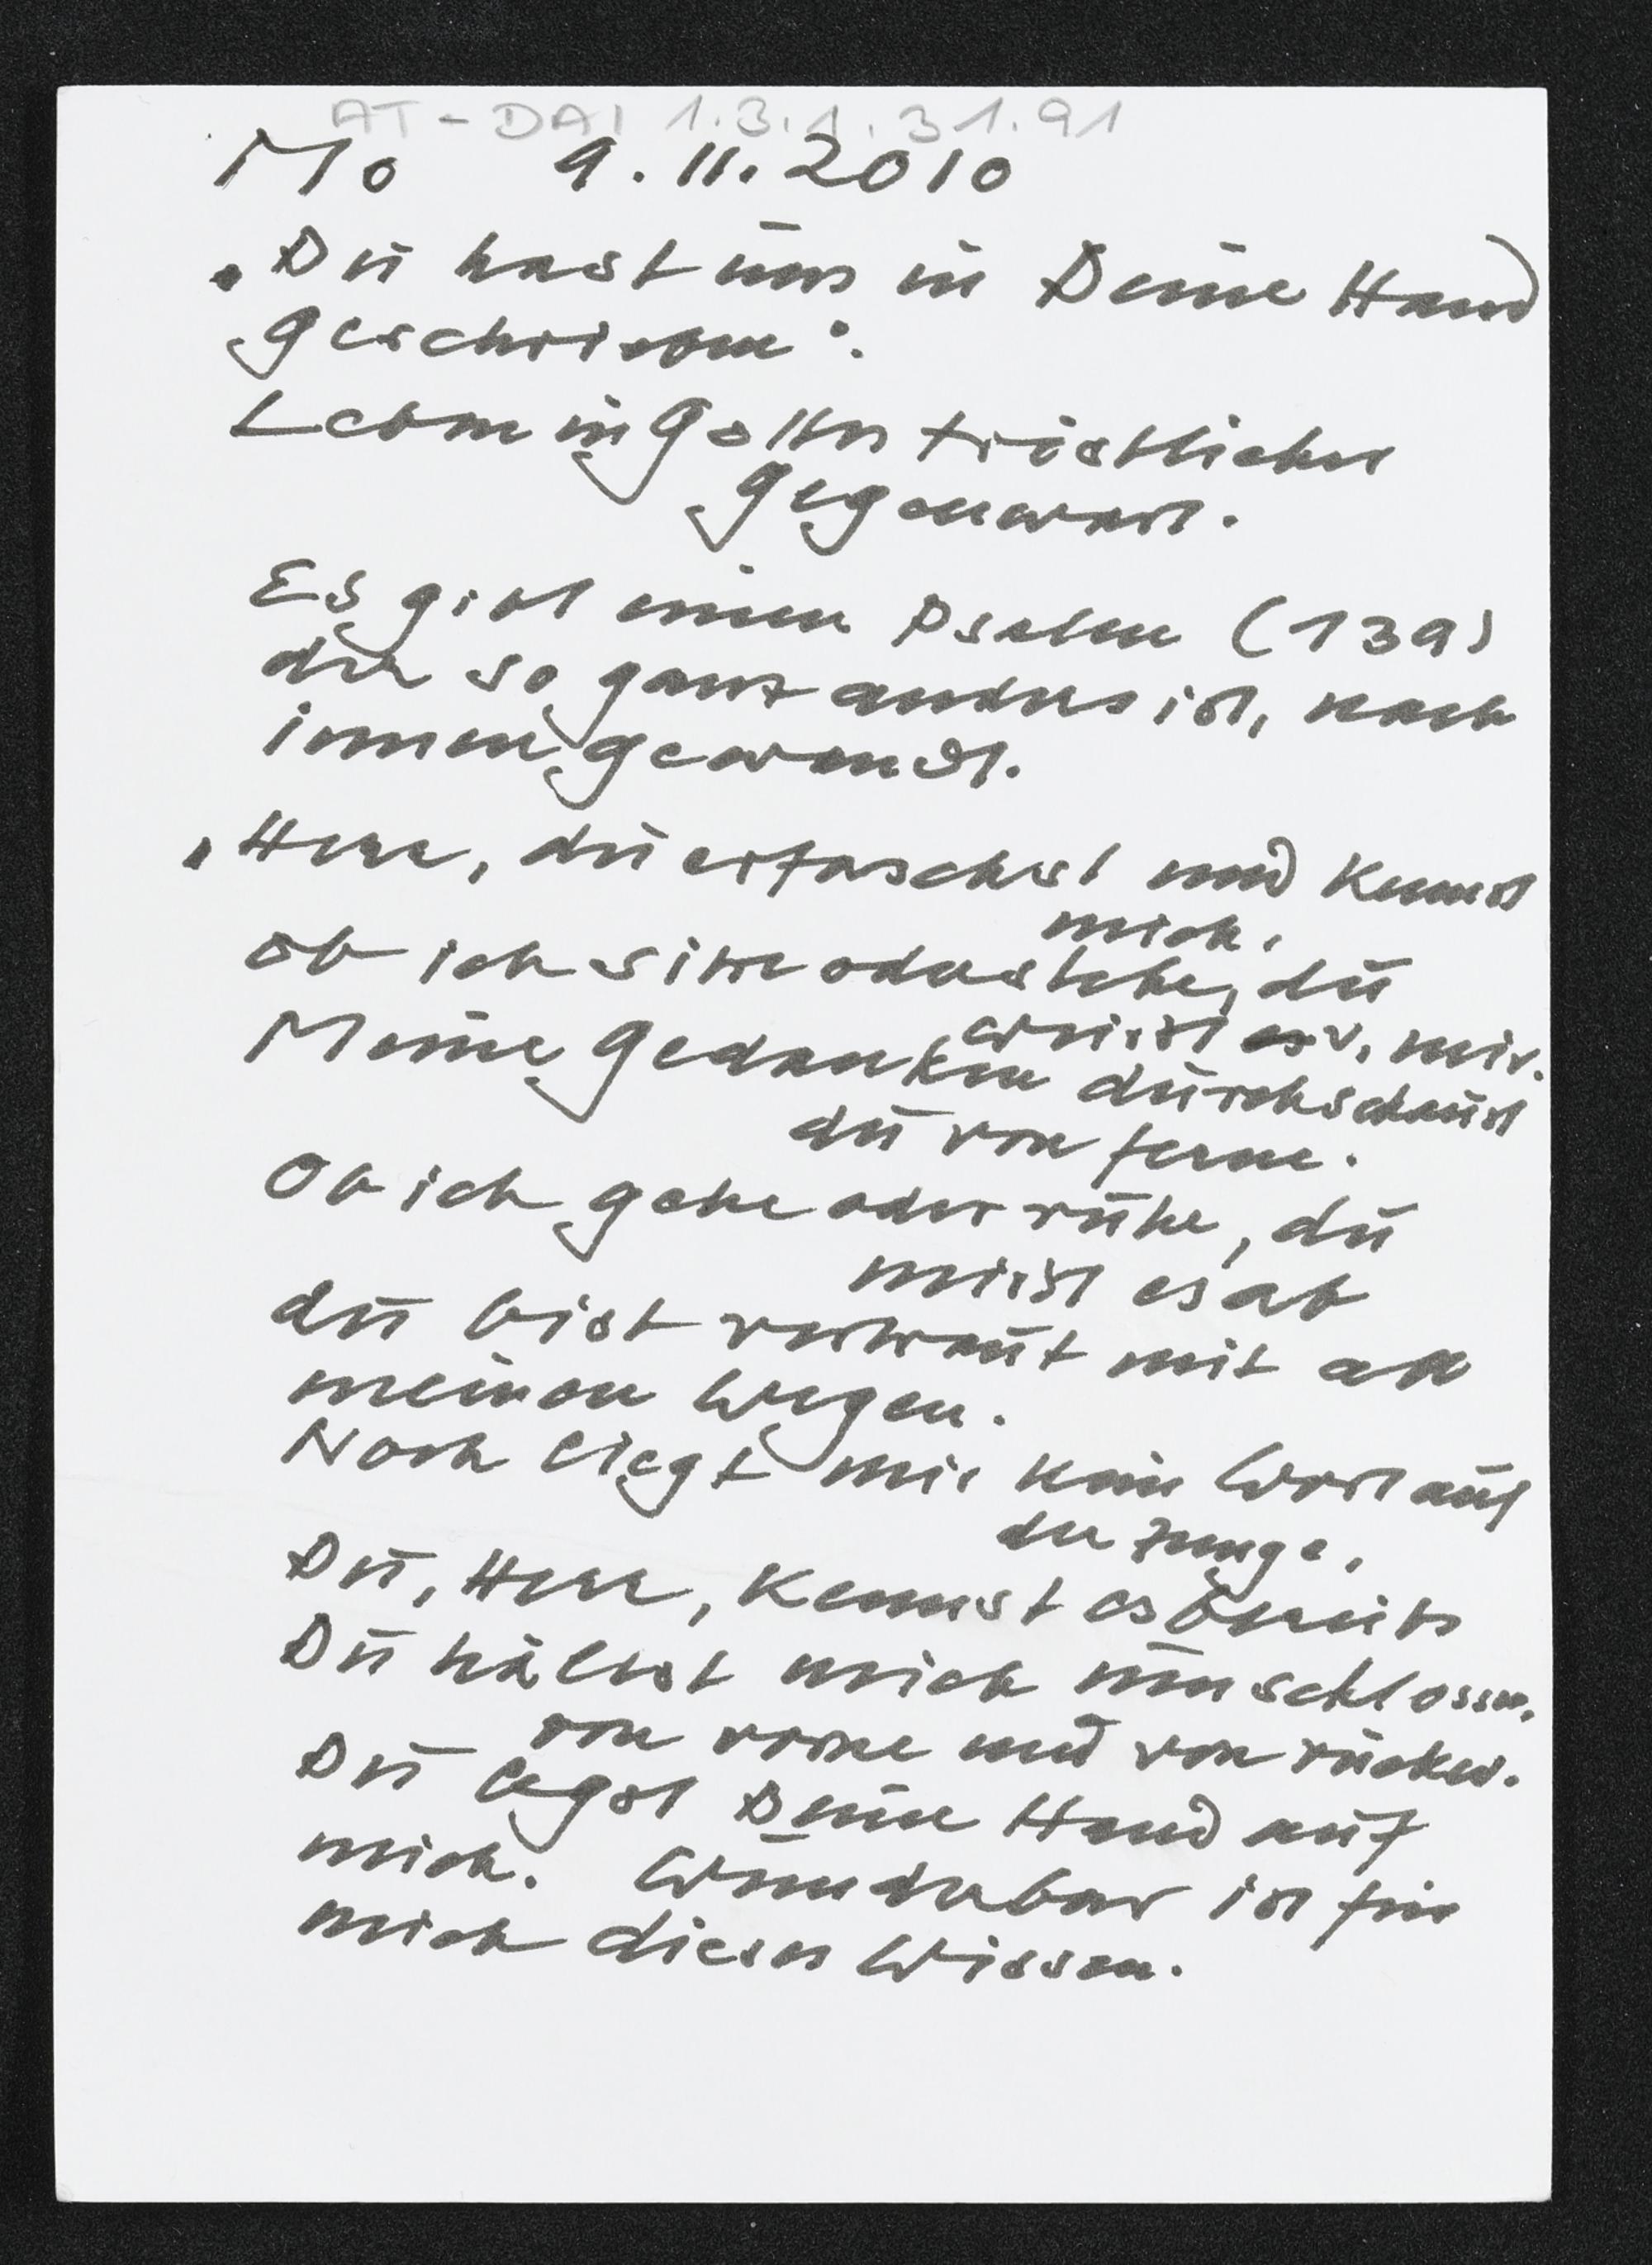 AT-DAI 1.3.1.31.91
Mo 9.11.2010
„Du hast uns in Deine Hand
geschrieben".
Leben in Gottes tröstlicher
Gegenwart.
Es gibt einen Psalm (139)
der so ganz anders ist, nach
innen gewendet.
„Herr, du erforschst und kennst
mich.
Ob ich sitze oder stehe, du
weißt es v. mir.
Meine Gedanken durchschaust
du von ferne.
Ob ich gehe oder ruhe, du
mißt es ab
du bist vertraut mit all
meinen Wegen.
Noch liegt mir kein Wort auf
der Zunge,
Du, Herr, kennst es bereits
Du hältst mich umschlossen,
von vorne und von rückw.
Du legst Deine Hand auf
mich. Wunderbar ist für
mich dieses Wissen.